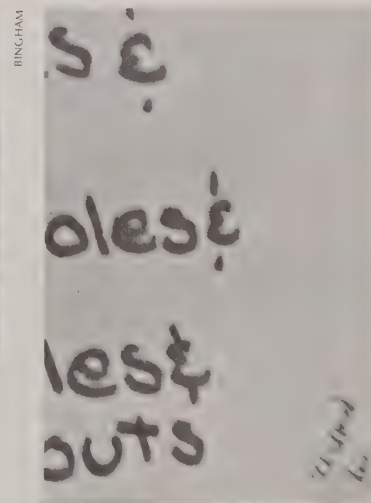 BINGHAM
s &
oles &
les &
outs